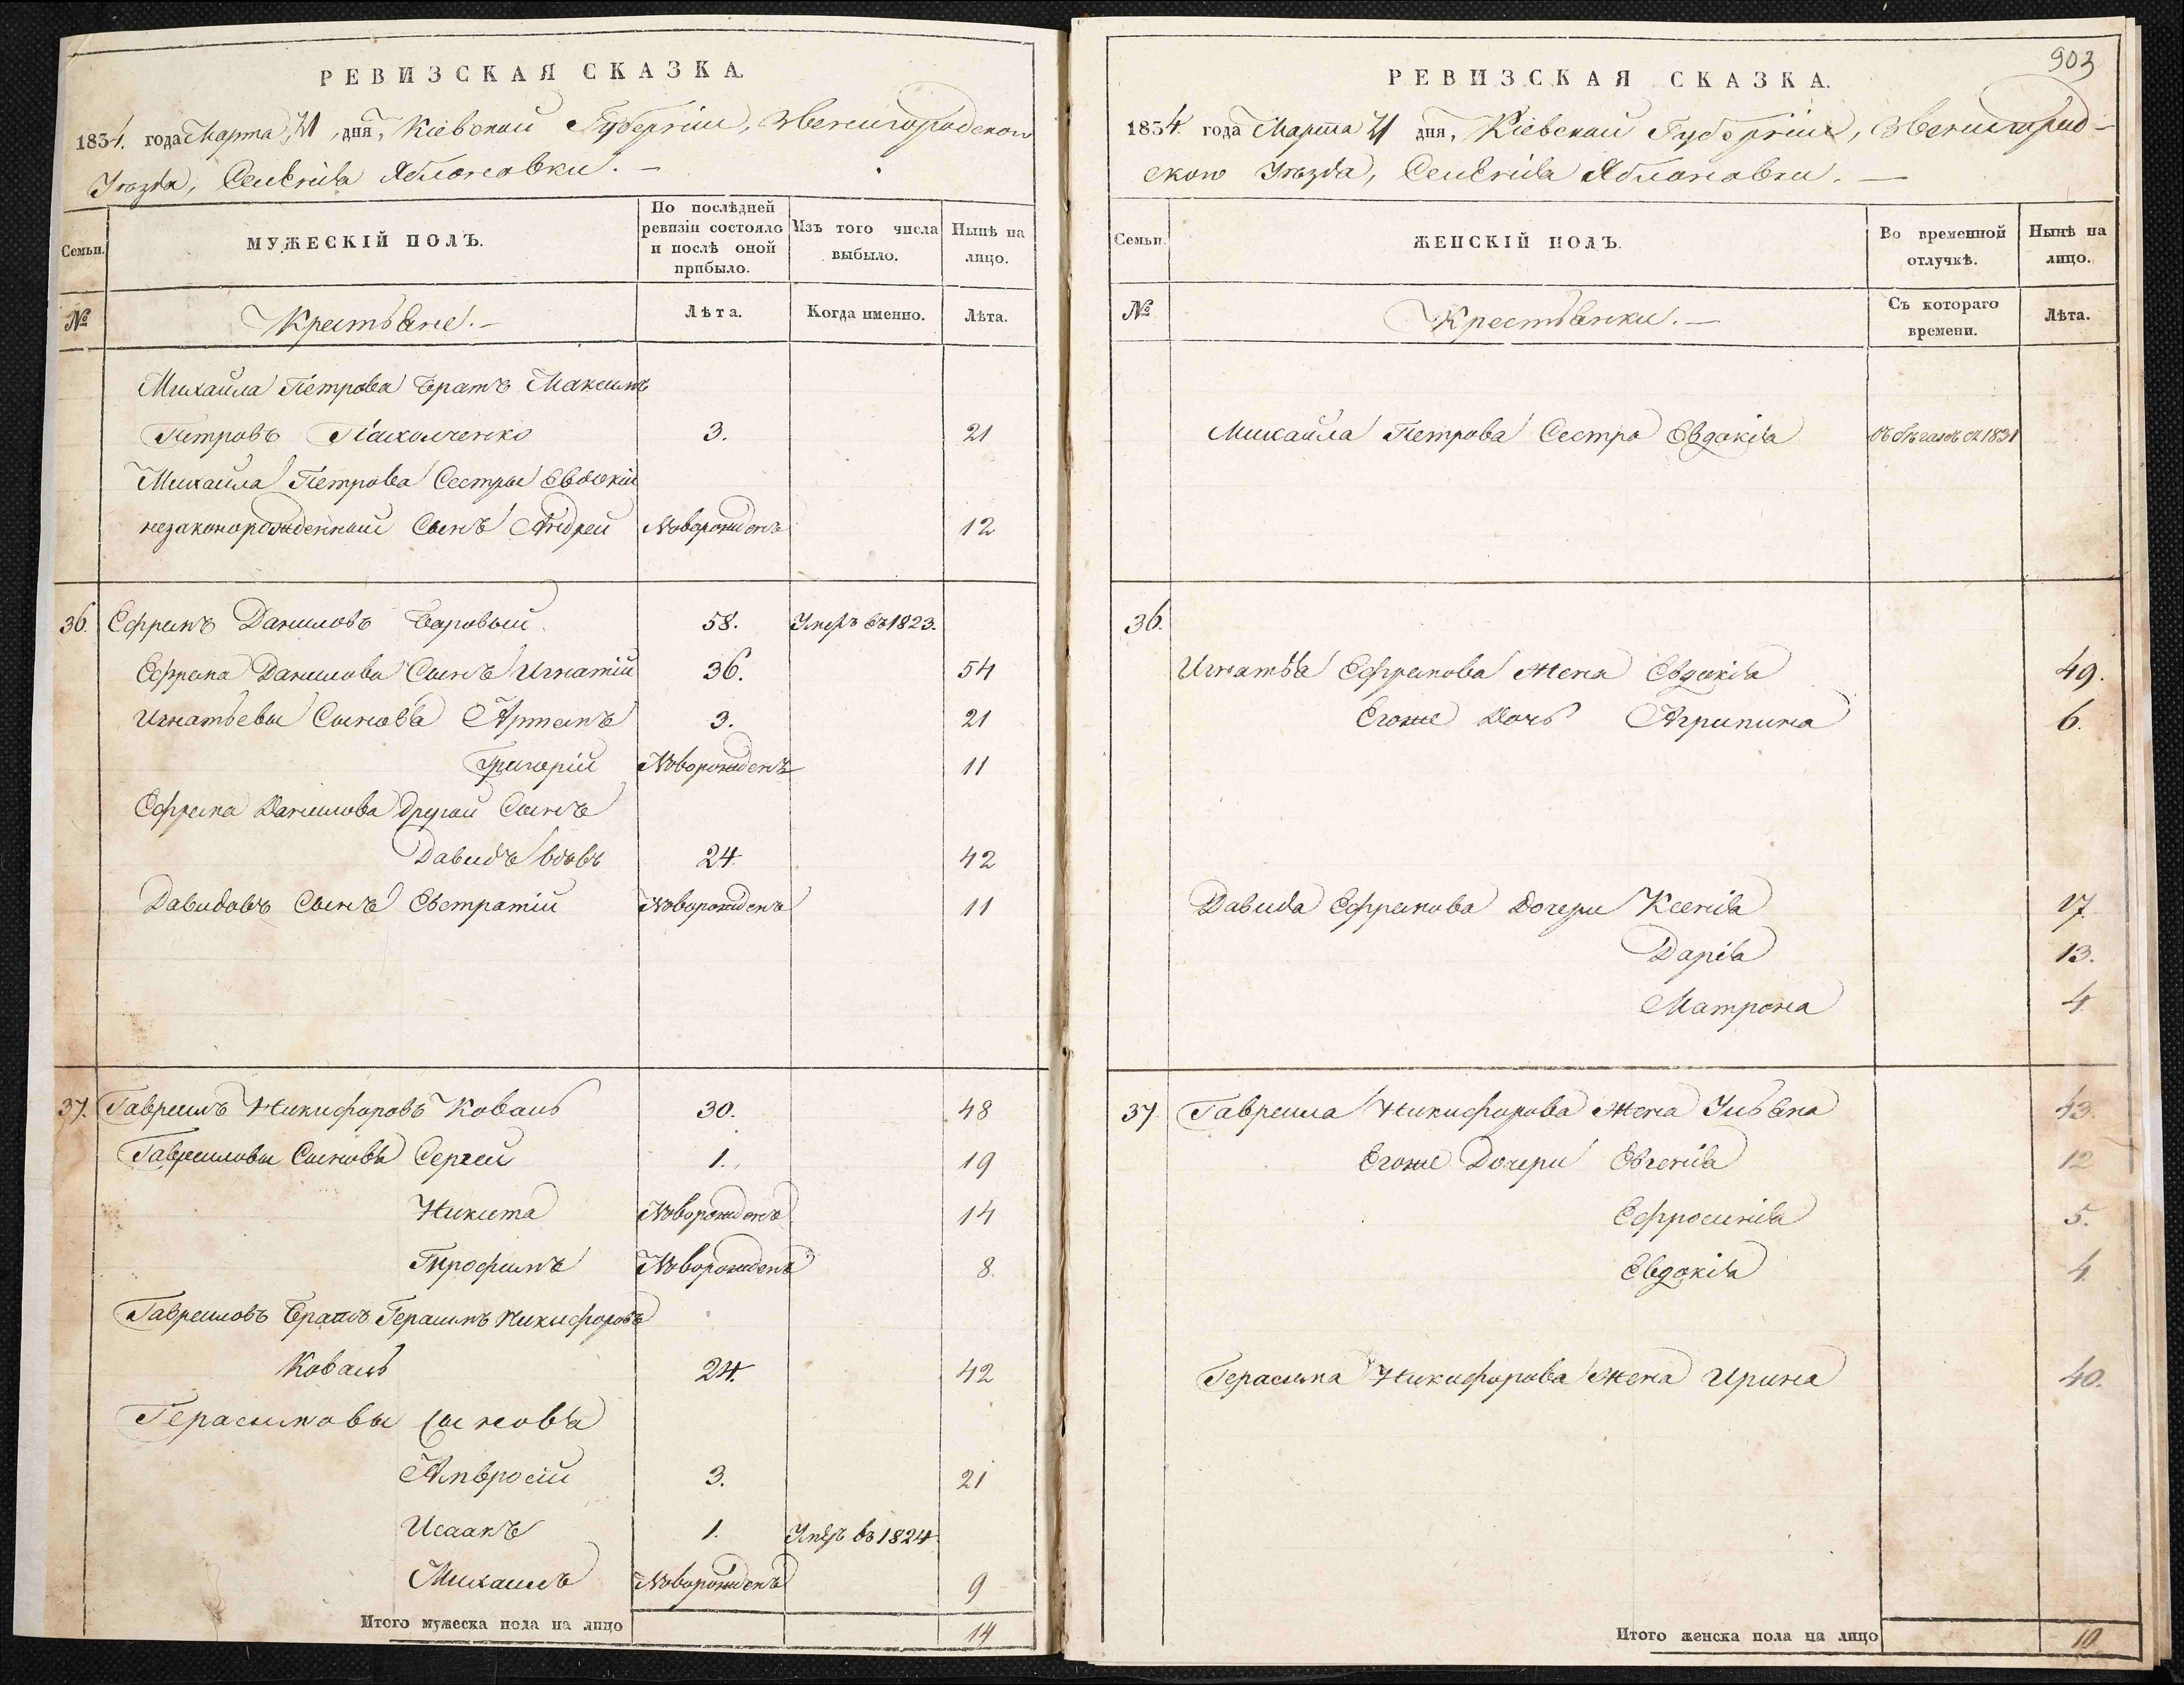 РЕВИЗСКАЯ СКАЗКА.
1834. года Марта 21 дня, Кіевской Губерніи, Звенигородскаго
Уѣзда, Селенія Яблоновки. —
Семьи.
МУЖЕСКІЙ ПОЛЪ.
По послѣдней ревизіи состояло и послѣ оной прибыло.
Изъ того числа выбыло.
Нынѣ на лицо.
№
Крестьяне. —
Лѣта.
Когда именно.
Лѣта.
Михайла Петрова Братъ Максимъ
Петровъ 3. 21
Михайла Петрова Сестры Евдокіи
незаконорожденный Сынъ Андрей Новорожденъ 12
36. Ефремъ Даниловъ Боровый 58. Умеръ въ 1823.
Ефрема Данилова Сынъ Игнатій 36. 54
Игнатьевы Сыновья Артемъ 3. 21
Григорій Новорожденъ 11
Ефрема Данилова другой Сынъ
Давидъ вдовъ 24 42
Давидовъ Сынъ Евстратій Новорожденъ 11
37. Гавриилъ Никифоровъ Коваль 30. 48
Гавриловы Сыновья Сергей 1. 19
Никита Новорожденъ 14
Трофимъ Новорожденъ 8.
Гавриловъ Братъ Герасимъ Никифоровъ
Коваль 24. 42
Герасимовы Сыновья
Амвросій 3. 21
Исаакъ 1. Умеръ въ 1824
Михаилъ Новорожденъ 9
Итого мужеска пола на лицо 14
903
РЕВИЗСКАЯ СКАЗКА.
1834. года Марта 21 дня, Кіевской Губерніи, Звенигород-
скаго Уѣзда, Селенія Яблоновки. —
Семьи.
ЖЕНСКІЙ ПОЛЪ.
Во временной отлучкѣ.
Нынѣ на лицо.
№
Крестьянки. —
Съ котораго времени.
Лѣта.
Михайла Петрова Сестра Евдокія въ бѣгахъ съ 1831
36.
Игнатья Ефремова Жена Евдокія 49.
Егоже Дочь Агрипина 6.
Давида Ефремова Дочери Ксенія 17.
Дарія 13.
Матрона 4
37 Гавриила Никифорова Жена Ульяна 43.
Егоже Дочери Евгенія 12
Ефросинія 5.
Евдокія 4.
Герасима Никифорова Жена Ирина 40.
Итого женска пола на лицо 10